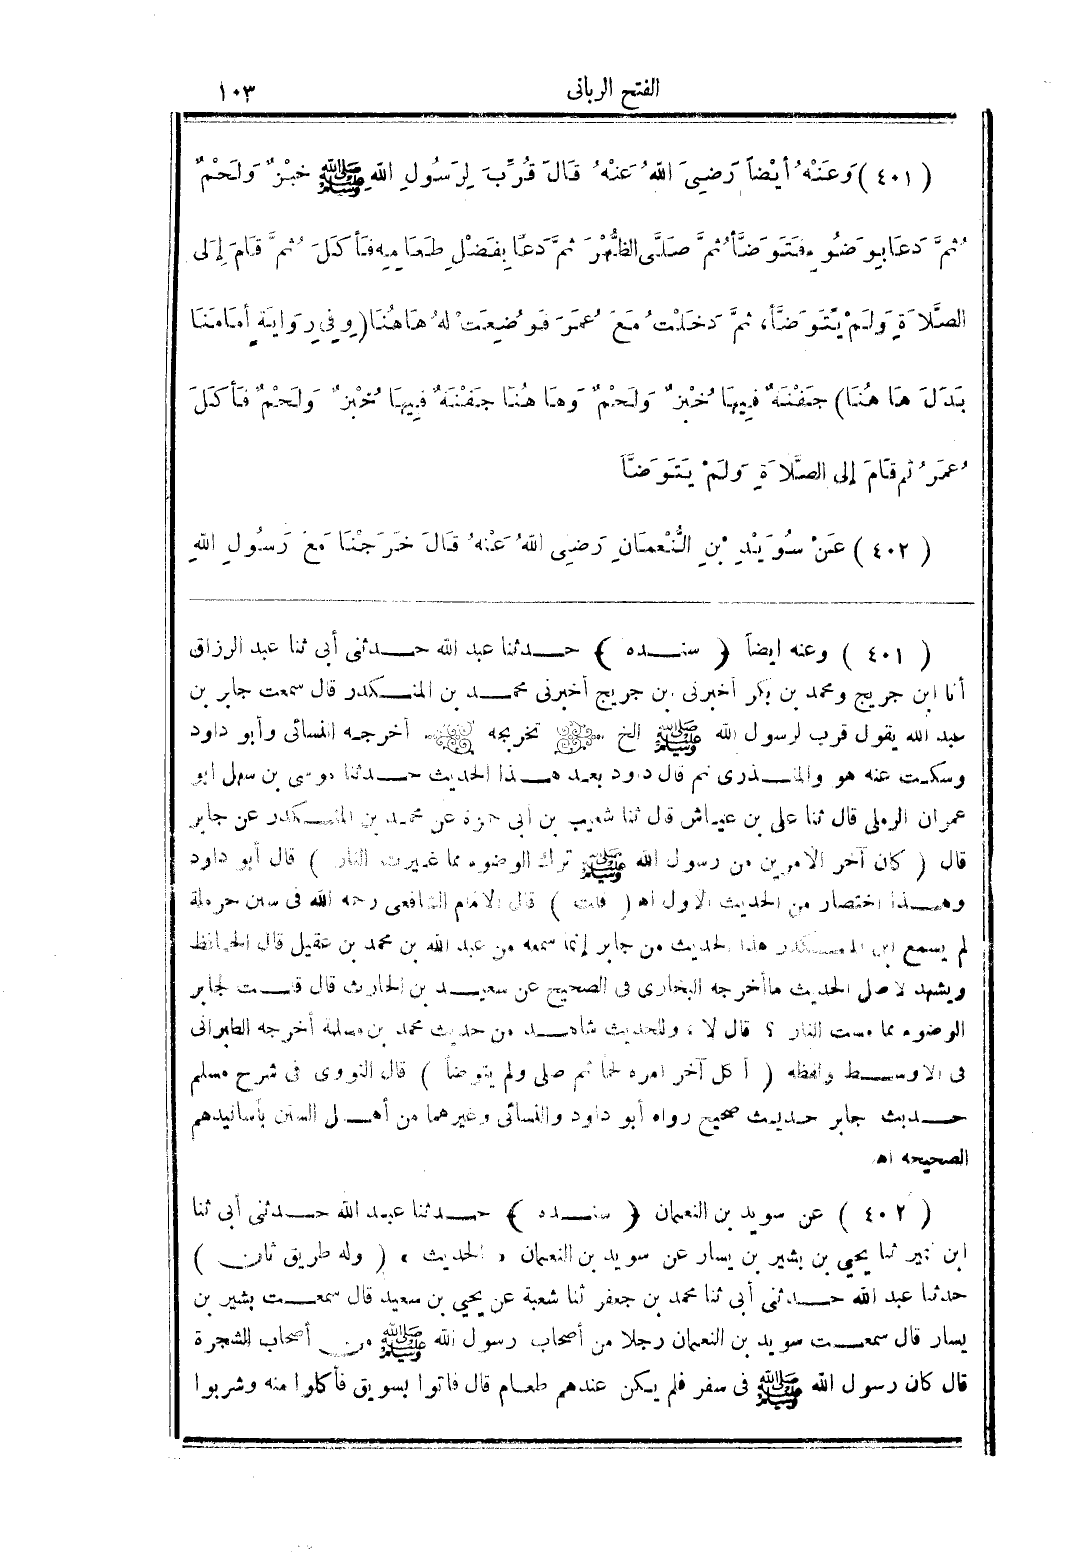 الفتح الربانى ١٠٣
(٤٠١) وَعَنْهُ أَيْضاً رَضِيَ اللهُ عَنْهُ قَالَ قُرِّبَ لِرَسُولِ اللهِ ﷺ خُبْزٌ وَلَحْمٌ
ثُمَّ دَعَا بِوَضُوءٍ فَتَوَضَّأَ ثُمَّ صَلَّى الظُّهْرَ ثُمَّ دَعَا بِفَضْلِ طَعَامِهِ فَأَكَلَ ثُمَّ قَامَ إِلَى
الصَّلَاةِ وَلَمْ يَتَوَضَّأْ، ثُمَّ دَخَلْتُ مَعَ عُمَرَ فَوُضِعَتْ لَهُ هَاهُنَا (وِ فِي رِوَايَةٍ أَمَامَنَا
بَدَلَ هَا هُنَا) جَفْنَةٌ فِيهَا خُبْزٌ وَلَحْمٌ وَهَا هُنَا جَفْنَةٌ فِيهَا خُبْزٌ وَلَحْمٌ فَأَكَلَ
عُمَرُ ثم قَامَ إِلى الصَّلَاةِ وَلَمْ يَتَوَضَّأْ
(٤٠٢) عَنْ سُوَيْدِ بْنِ النُّعْمَانِ رَضِيَ اللهُ عَنْهُ قَالَ خَرَجْنَا مَعَ رَسُولِ اللهِ
(٤٠١) وعنه ايضاً ﴿ سنده ﴾ حدثنا عبد الله حدثنى أبى ثنا عبد الرزاق
أنا ابن جريج ومحمد بن بكر أخبرنى ابن جريج أخبرنى محمد بن المنكدر قال سمعت جابر بن
عبد الله يقول قرب لرسول الله ﷺ الخ تخريجه أخرجه النسائى وأبو داود
وسكت عنه هو والمنذرى ثم قال داود بعد هذا الحديث حدثنا موسى بن سهل ابو
عمران الرملى قال ثنا على بن عياش قال ثنا شعيب بن أبى حمزة عن محمد بن المنكدر عن جابر
قال (كان آخر الأمرين من رسول الله ﷺ ترك الوضوء مما غيرت النار) قال أبو داود
وهذا اختصار من الحديث الاول اهـ (قلت) قال الامام الشافعى رحمه الله فى سنن حرملة
لم يسمع ابن المنكدر هذا الحديث من جابر إنما سمعه من عبد الله بن محمد بن عقيل قال الحافظ
ويشهد لاصل الحديث ماأخرجه البخارى فى الصحيح عن سعيد بن الحارث قال قلت لجابر
الوضوء مما مست النار ؟ قال لا ، وللحديث شاهد من حديث محمد بن مسلمة أخرجه الطبرانى
فى الاوسط ولفظه (أكل آخر امره لحما ثم صلى ولم يتوضأ) قال النووى فى شرح مسلم
حديث جابر حديث صحيح رواه أبو داود والنسائى وغيرهما من أهل السنن بأسانيدهم
الصحيحه اهـ
(٤٠٢) عن سويد بن النعمان ﴿ سنده ﴾ حدثنا عبد الله حدثنى أبى ثنا
ابن نمير ثنا يحيى بن بشير بن يسار عن سويد بن النعمان « الحديث » (وله طريق ثان)
حدثنا عبد الله حدثنى أبى ثنا محمد بن جعفر ثنا شعبة عن يحيى بن سعيد قال سمعت بشير بن
يسار قال سمعت سويد بن النعمان رجلا من أصحاب رسول الله ﷺ من أصحاب الشجرة
قال كان رسول الله ﷺ فى سفر فلم يكن عندهم طعام قال فاتوا بسويق فأكلوا منه وشربوا